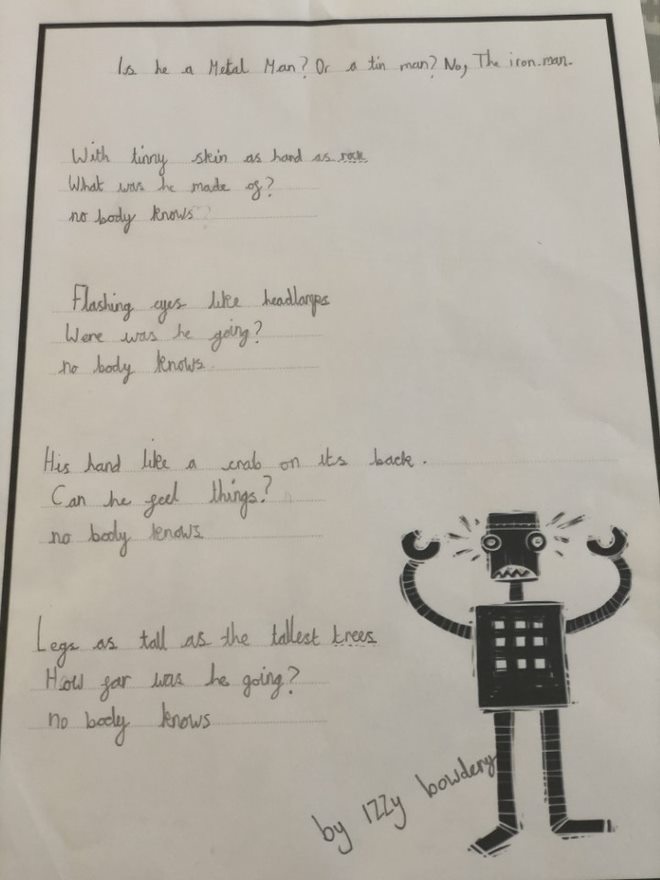 Is he a Metal Man? Or a tin man? No, The iron man.
With tinny skin as hard as rock
What was he made of?
no body knows
Flashing eyes like headlamps
Were was he going?
no body knows
His hand like a crab on its back.
Can he feel things?
no body knows
Legs as tall as the tallest trees
How far was he going?
no body knows
by Izzy bowdery